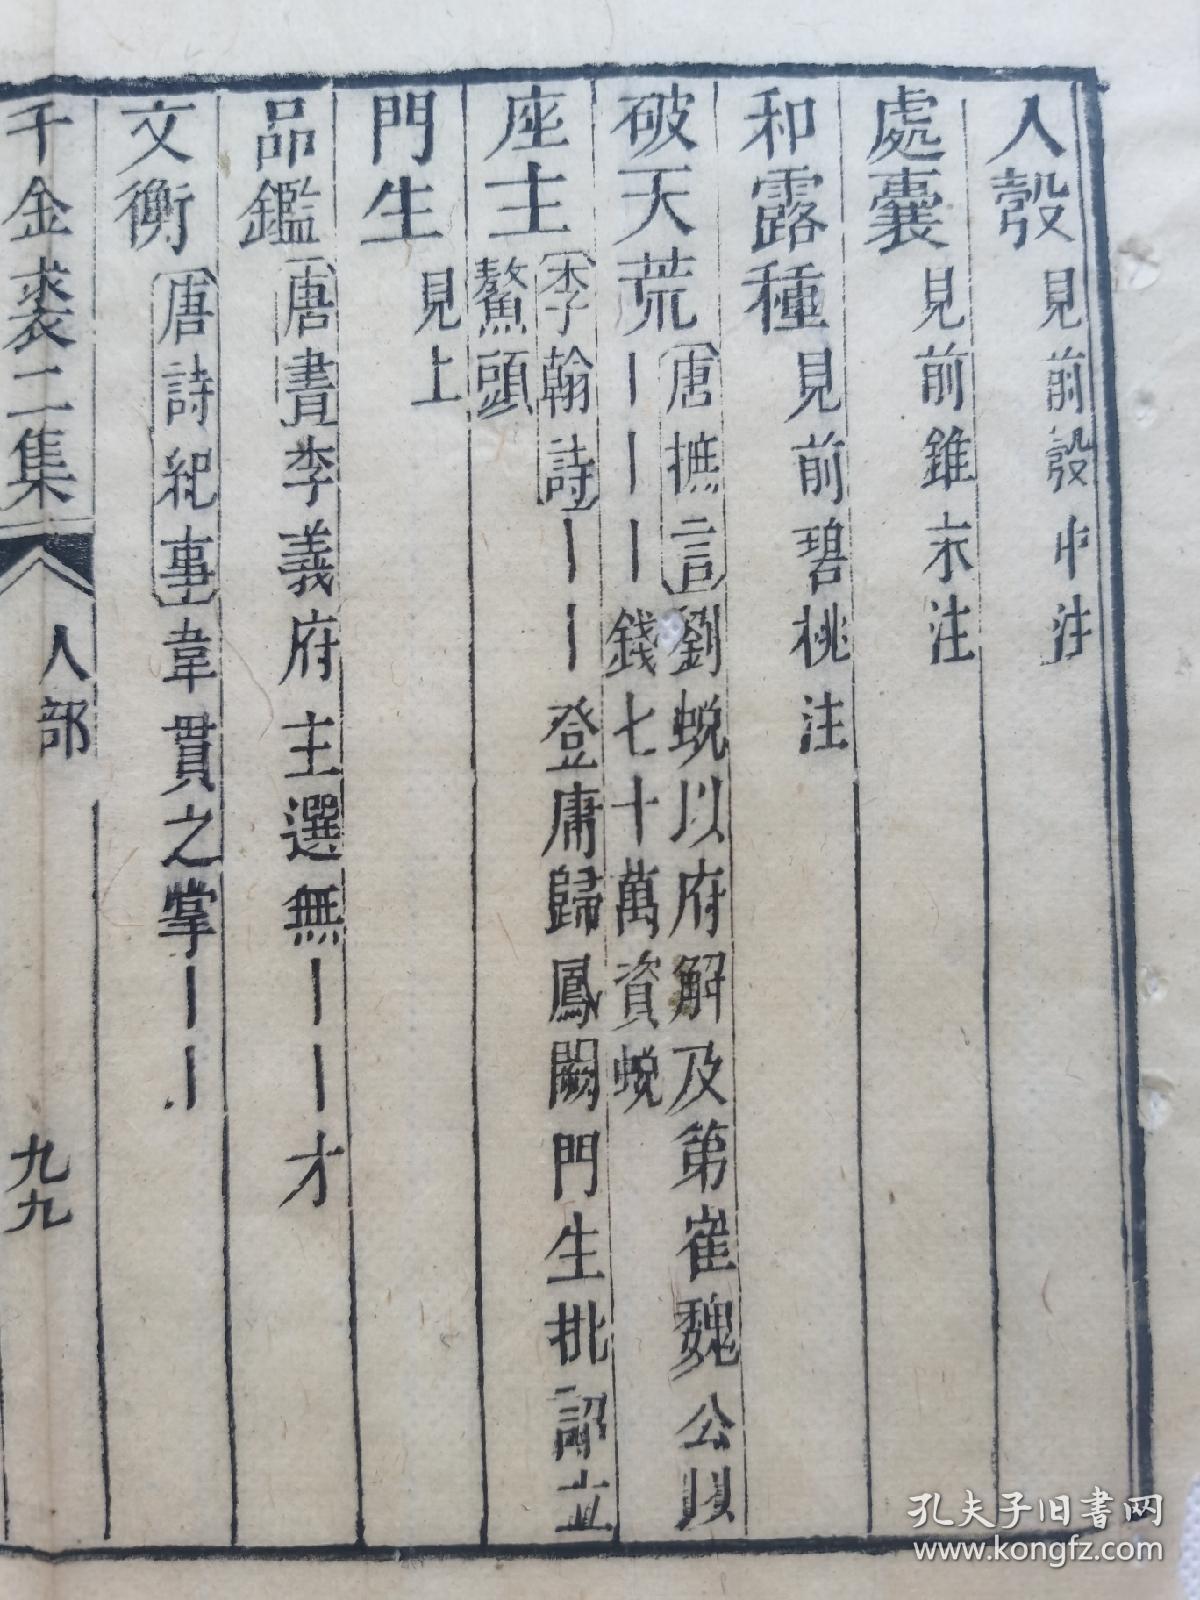 入彀見前彀中注
處囊見前錐末注
和露種見前碧桃注
破天荒唐摭言劉蛻以府解及第崔魏公以
丨丨丨錢七十萬資蛻
座主李翰詩丨丨登庸歸鳳闕門生批詔立
鰲頭
門生見上
品鑑唐書李義府主選無丨丨才
文衡唐詩紀事韋貫之掌丨丨
千金裘二集 人部 九九
孔夫子旧书网
www.kongfz.com